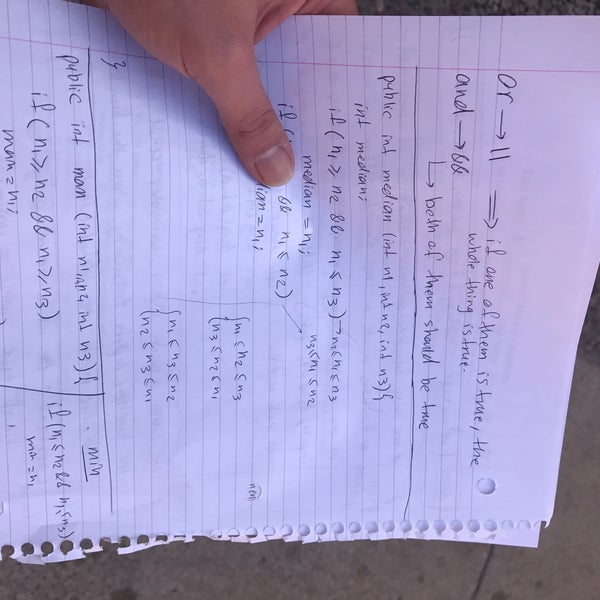 or → || ⇒ if one of them is true, the
whole thing is true.
and → &&
↳ both of them should be true
public int median (int n1, int n2, int n3){
int median;
if (n1 ≥ n2 && n1 ≤ n3) → n2 ≤ n1 ≤ n3
median = n1;
n3 ≤ n1 ≤ n2
if ( && n1 ≤ n2)
= n1;
{ n1 ≤ n2 ≤ n3
n3 ≤ n2 ≤ n1
{ n1 ≤ n3 ≤ n2
n2 ≤ n3 ≤ n1
}
public int max (int n1, int n2, int n3){
if (n1 ≥ n2 && n1 ≥ n3)
max = n1;
min
if (n1 ≤ n2 && n1 ≤ n3)
min = n1